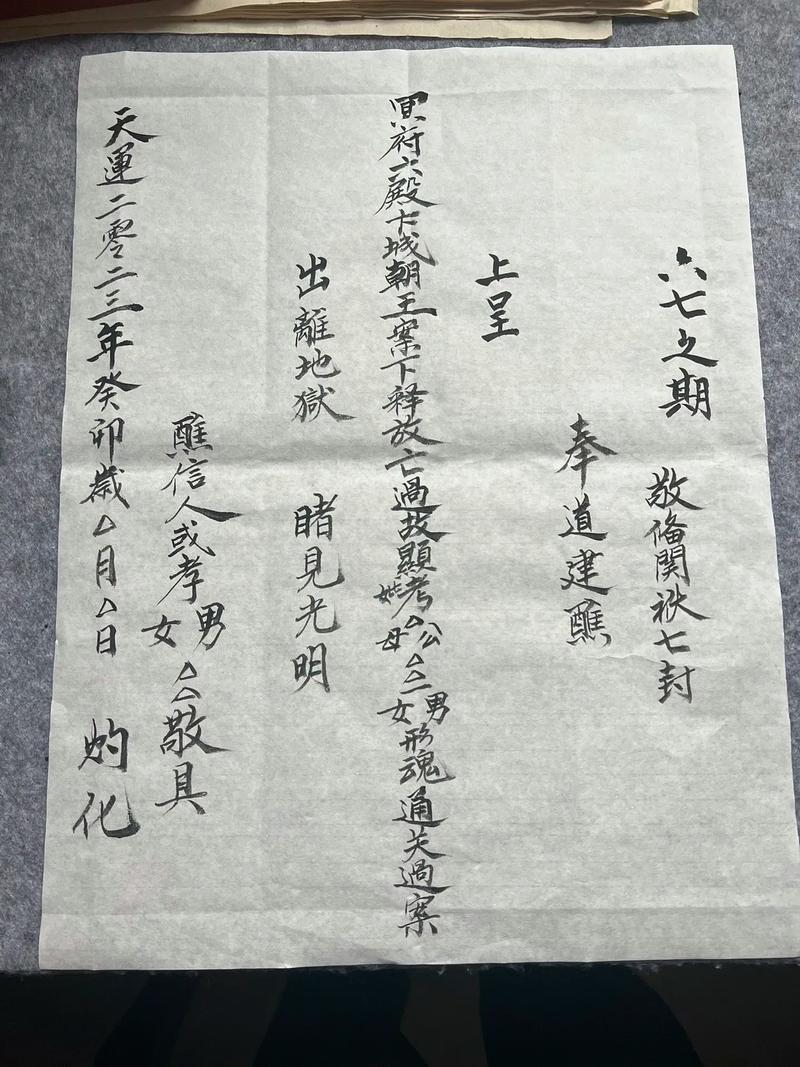 六七之期
敬俻関袱七封
奉道建醮
上呈
冥府六殿卞城朝王案下释放亡過故顯考妣△公母△△男女形魂通关過案
出離地獄 睹見光明
醮信人或孝男女△△敬具
天運二零二三年癸卯歲△月△日 灼化